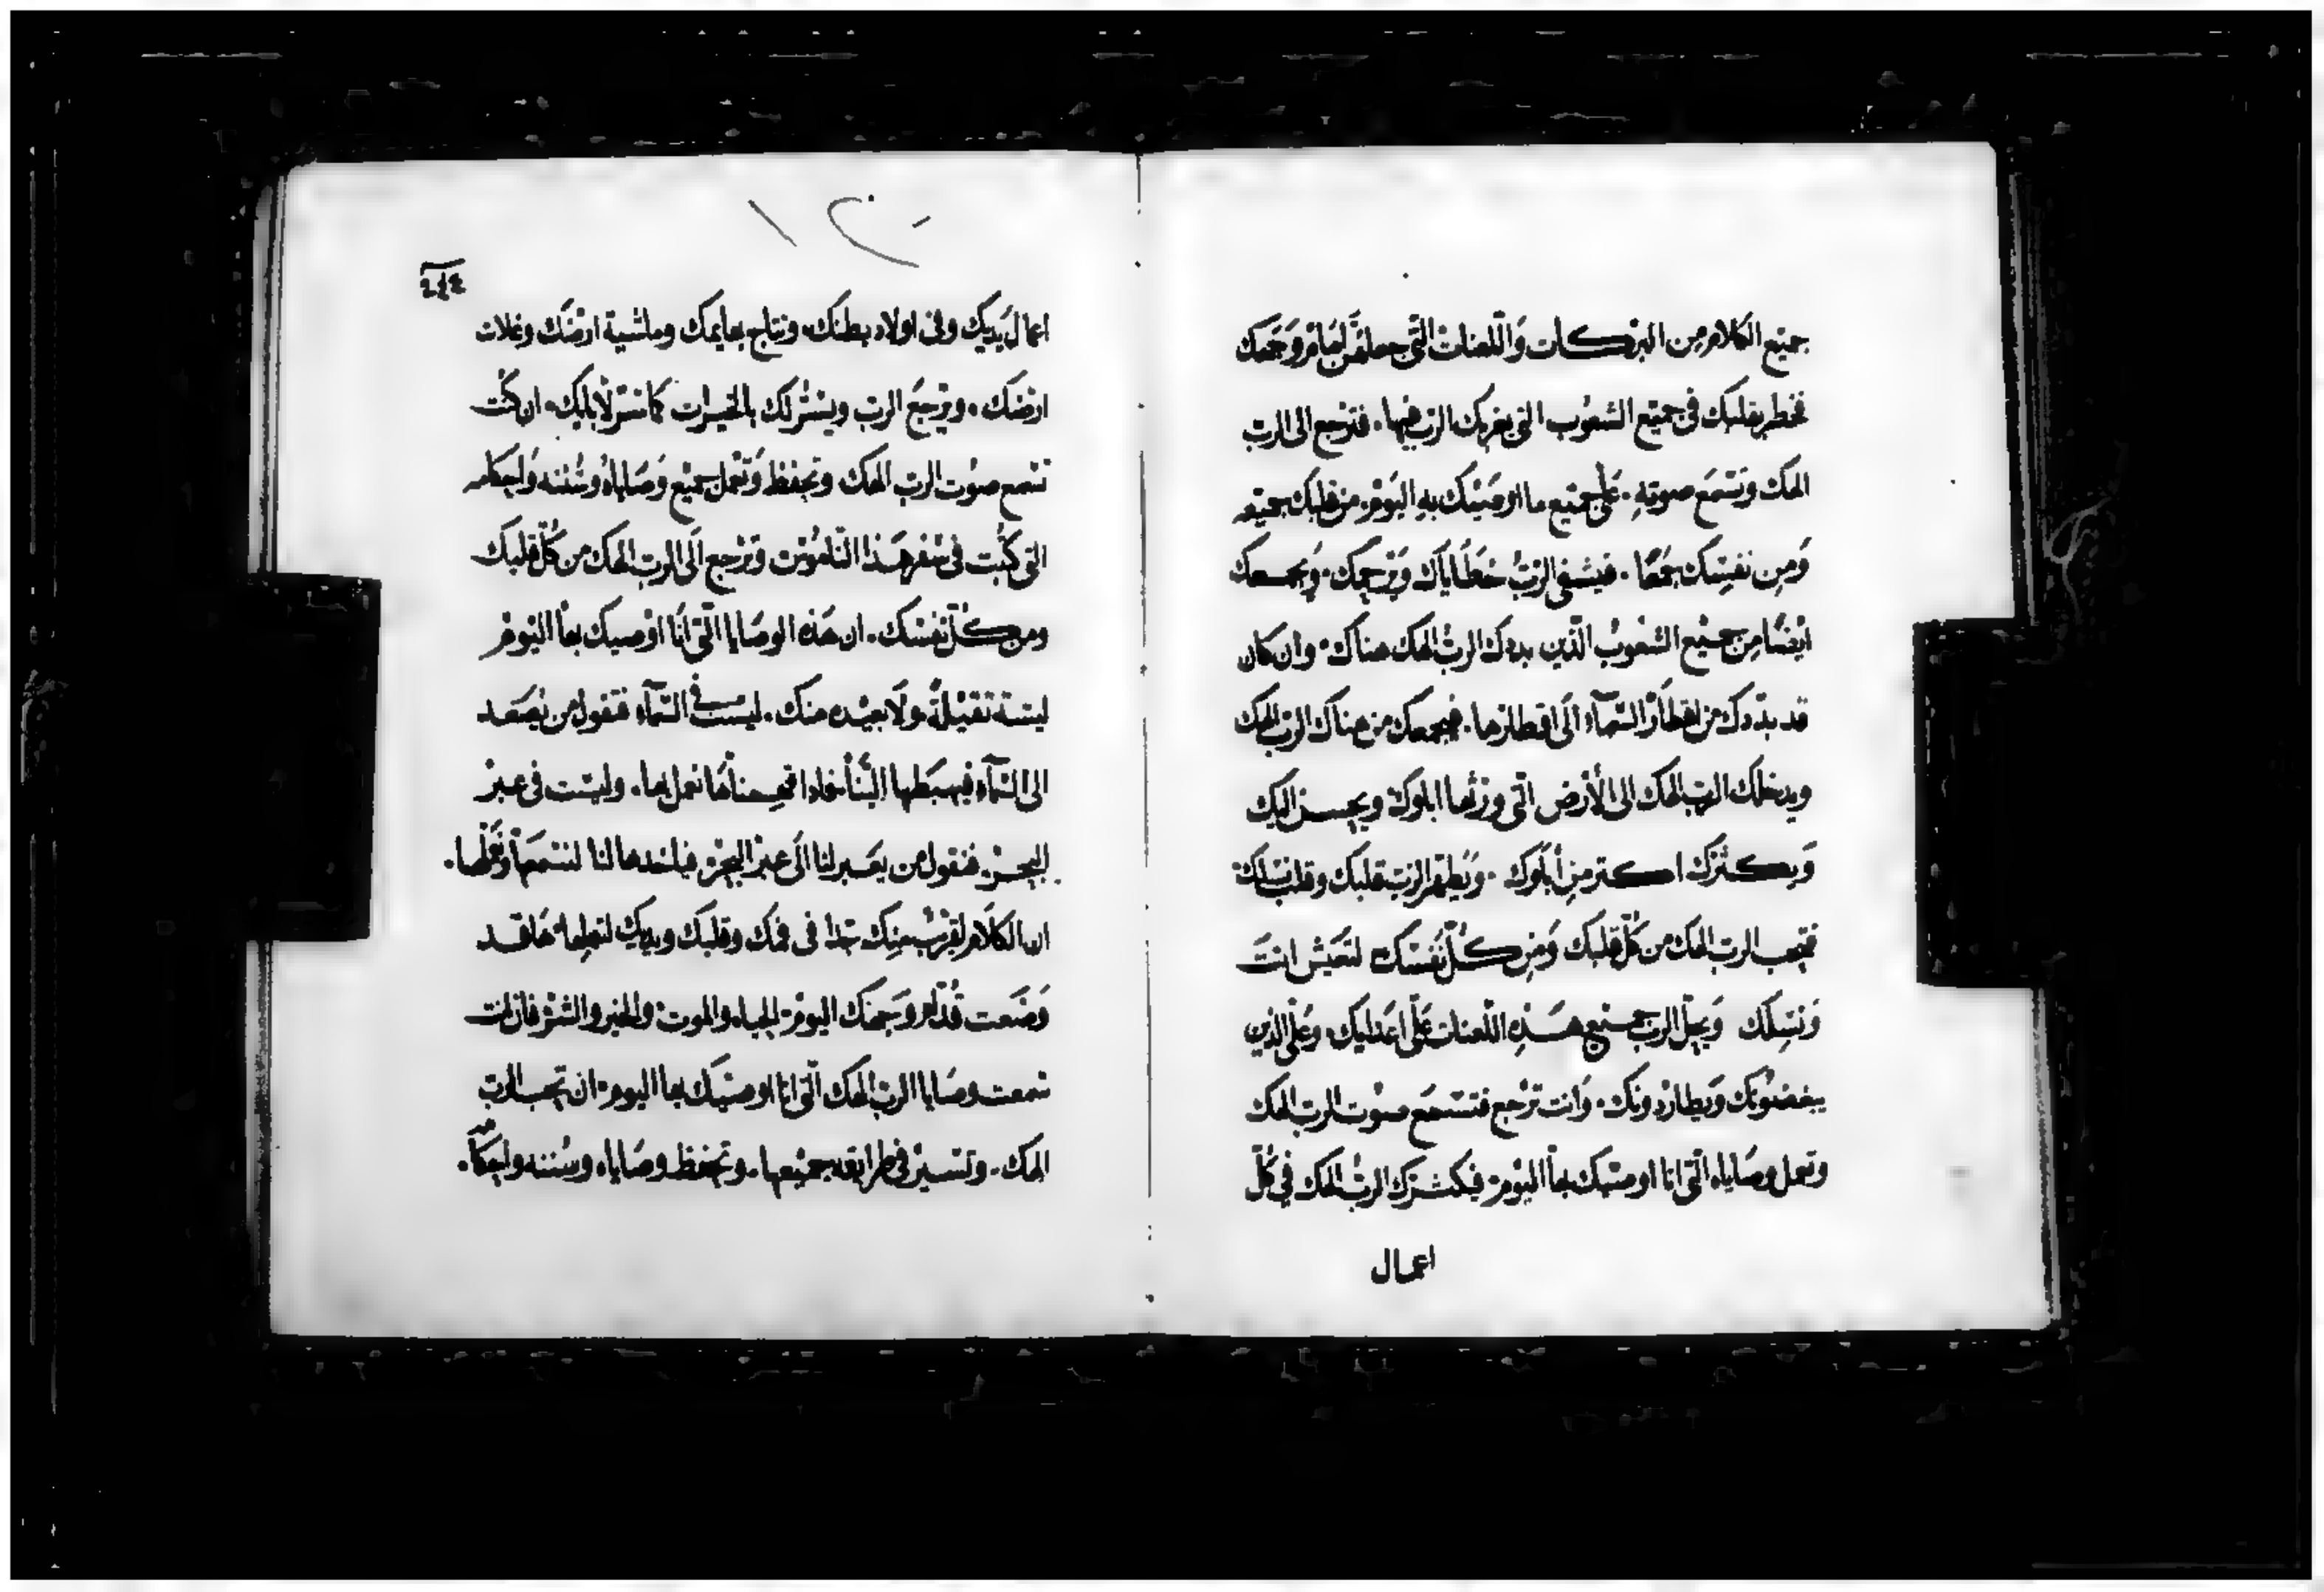 جميع الكلام من البركات واللعنات التى جعلتهن لقدام وجهك
تخطر بقلبك فى جميع الشعوب التى يفرقك الرب فيها. فترجع الى الرب
الهك وتسمع صوته. على جميع ما اوصيتك به اليوم. من قلبك جميعه
ومن نفسك جمعا. فيشفى الرب خطاياك ويرحمك. ويجمعك
ايضا من جميع الشعوب الذين بددك الرب الهك هناك. وان كان
قد بددك من اقطار السماء الى اقطارها. فيجمعك من هناك الرب الهك
ويدخلك الرب الهك الى الأرض التى ورثها اباوك ويحسن اليك
ويكثرك اكتر من أباوك. ويطهر الرب قلبك وقلب نسلك.
فتحب الرب الهك من كل قلبك ومن كل نفسك لتعيش انت
ونسلك ويحل الرب جميع هذه اللعنات على اعدايك. وعلى الذين
يبغضونك ويطاردونك. وانت ترجع فتسمع صوت الرب الهك
وتعمل وصاياه التى انا اوصيك بها اليوم فيكثرك الرب الهك فى كل
اعمال
اعمال يديك وفى اولاد بطنك. ونتاج بهايمك وماشية ارضك وغلات
ارضك. ويرجع الرب ويسر لك بالخيرات كما سر لأبايك. ان كنت
تسمع صوت الرب الهك وتحفظ وتعمل جميع وصاياه وسننه واحكامه
التى كتبت فى سفر هذا الناموس وترجع الى الرب الهك من كل قلبك
ومن كل نفسك. ان هذه الوصايا التى انا اوصيك بها اليوم
ليسة تقيلة ولا بعيده منك. ليست فى السماء فتقول من يصعد
الى السماء فيهبطها الينا فاذا سمعناها نعمل بها. وليست فى عبر
البحر. فتقول من يعبر لنا الى عبر البحر فياخدها لنا لنسمعها ونعملها.
ان الكلام لقريب منك جدا فى فمك وقلبك ويديك لتعملها. هاقد
وضعت قدام وجهك اليوم الحياه والموت والخير والشر فان انت
سمعت وصايا الرب الهك التى انا اوصيك بها اليوم. ان تحب الرب
الهك. وتسير فى طرايقه جميعها. وتحفظ وصاياه وسننه واحكامه.